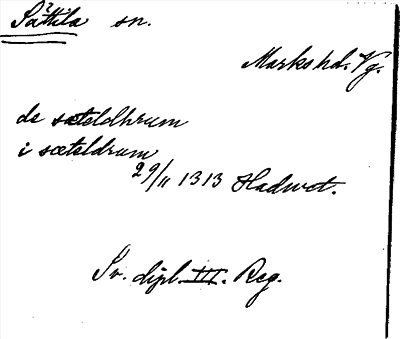 Sätila sn.
Marks hd. Vg.
de sæteldhrum
i sæteldrum
29/11 1313 Hadwet.
Sv. dipl. III. Reg.